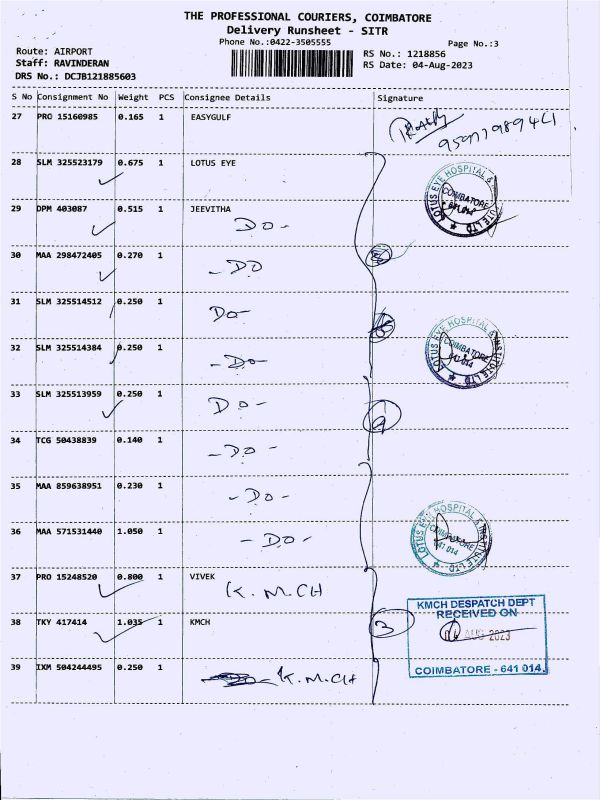 THE PROFESSIONAL COURIERS, COIMBATORE
Delivery Runsheet - SITR
Phone No.:0422-3505555
Page No.:3
Route: AIRPORT
RS No.: 1218856
Staff: RAVINDERAN
RS Date: 04-Aug-2023
DRS No.: DCJB121885603
S No Consignment No Weight PCS Consignee Details Signature
27 PRO 15160985 0.165 1 EASYGULF
28 SLM 325523179 0.675 1 LOTUS EYE
LOTUS EYE HOSPITAL & INSTITUTE LTD
COIMBATORE
641 014
29 DPM 403087 0.515 1 JEEVITHA
DO-
30 MAA 298472405 0.270 1
-DO
31 SLM 325514512 0.250 1
DO-
32 SLM 325514384 0.250 1
-DO-
LOTUS EYE HOSPITAL & INSTITUTE LTD
COIMBATORE
641 014
33 SLM 325513959 0.250 1
DO-
34 TCG 50438839 0.140 1
-DO-
35 MAA 859638951 0.230 1
-DO-
36 MAA 571531440 1.050 1
-DO-
LOTUS EYE HOSPITAL & INSTITUTE LTD
COIMBATORE
641 014
37 PRO 15248520 0.800 1 VIVEK
K.M.CH
38 TKY 417414 1.035 1 KMCH
3
KMCH DESPATCH DEPT
RECEIVED ON
AUG 2023
COIMBATORE - 641 014.
39 IXM 504244495 0.250 1
K.M.CH